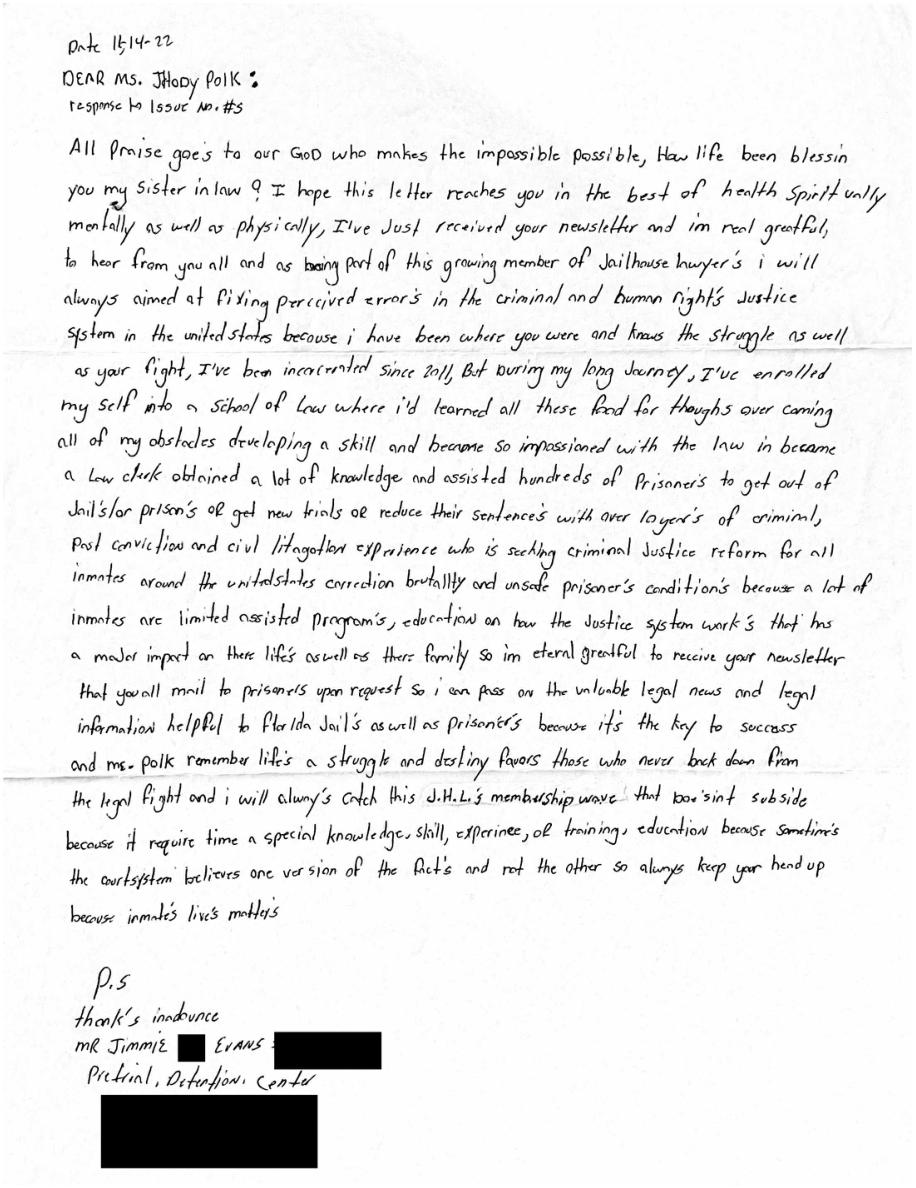 Date 11-14-22
DEAR MS. JHODY POlK :
response to Issue No. #5
All Praise goe's to our GOD who makes the impossible possible, How life been blessin
you my Sister in law ? I hope this letter reaches you in the best of health Spiritually
mentally as well as physically, I've Just received your newsletter and im real greatful,
to hear from you all and as being part of this growing member of Jailhouse lawyer's i will
always aimed at fixing perceived error's in the criminal and human right's Justice
system in the united states because i have been where you were and knows the struggle as well
as your fight, I've been incarcerated since 2011, But During my long Journey, I've enrolled
my self into a School of Law where i'd learned all these food for thoughs over coming
all of my obstacles developing a skill and became so impassioned with the law in became
a Law clerk obtained a lot of knowledge and assisted hundreds of Prisoner's to get out of
Jail's/or prison's or get new trials or reduce their sentence's with over 10 year's of criminal,
Post conviction and civil litagation experience who is seeking criminal Justice reform for all
inmates around the unitedstates correction brutallty and unsafe prisoner's condition's because a lot of
inmates are limited assisted program's, education on how the Justice system work's that has
a major impact on there life's aswell as there family so im eternal greatful to receive your newsletter
that you all mail to prisoners upon request so i can pass on the valuable legal news and legal
information helpful to florida Jail's aswell as prisoner's because it's the key to success
and ms. polk remember life's a struggle and destiny favors those who never back down from
the legal fight and i will alway's catch this J.H.L.'s membership wave that doe'sint subside
because it require time a special knowledge, skill, experince, or training, education because sometime's
the courtsystem believes one version of the fact's and not the other so always keep your head up
because inmate's live's matter's
P.S
thank's inadvance
MR JIMMIE EVANS
Pretrial, Detention, Center